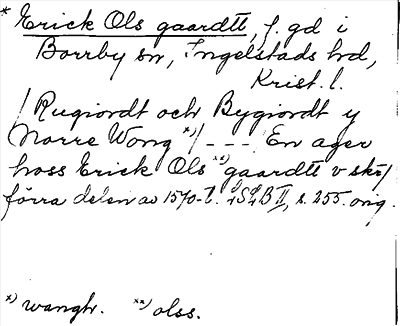 * Erick Ols gaardtt, f. gd i
Borrby sn, Ingelstads hd,
Krist. l.
/ Rugiordt och Bygiordt y
Norre Wong *)/ --- En ager
hoss Erick Ols **) gaardtt v skó/
förra delen av 1570-t. LSLB II, s. 255. orig.
*) wangh. **) olss.